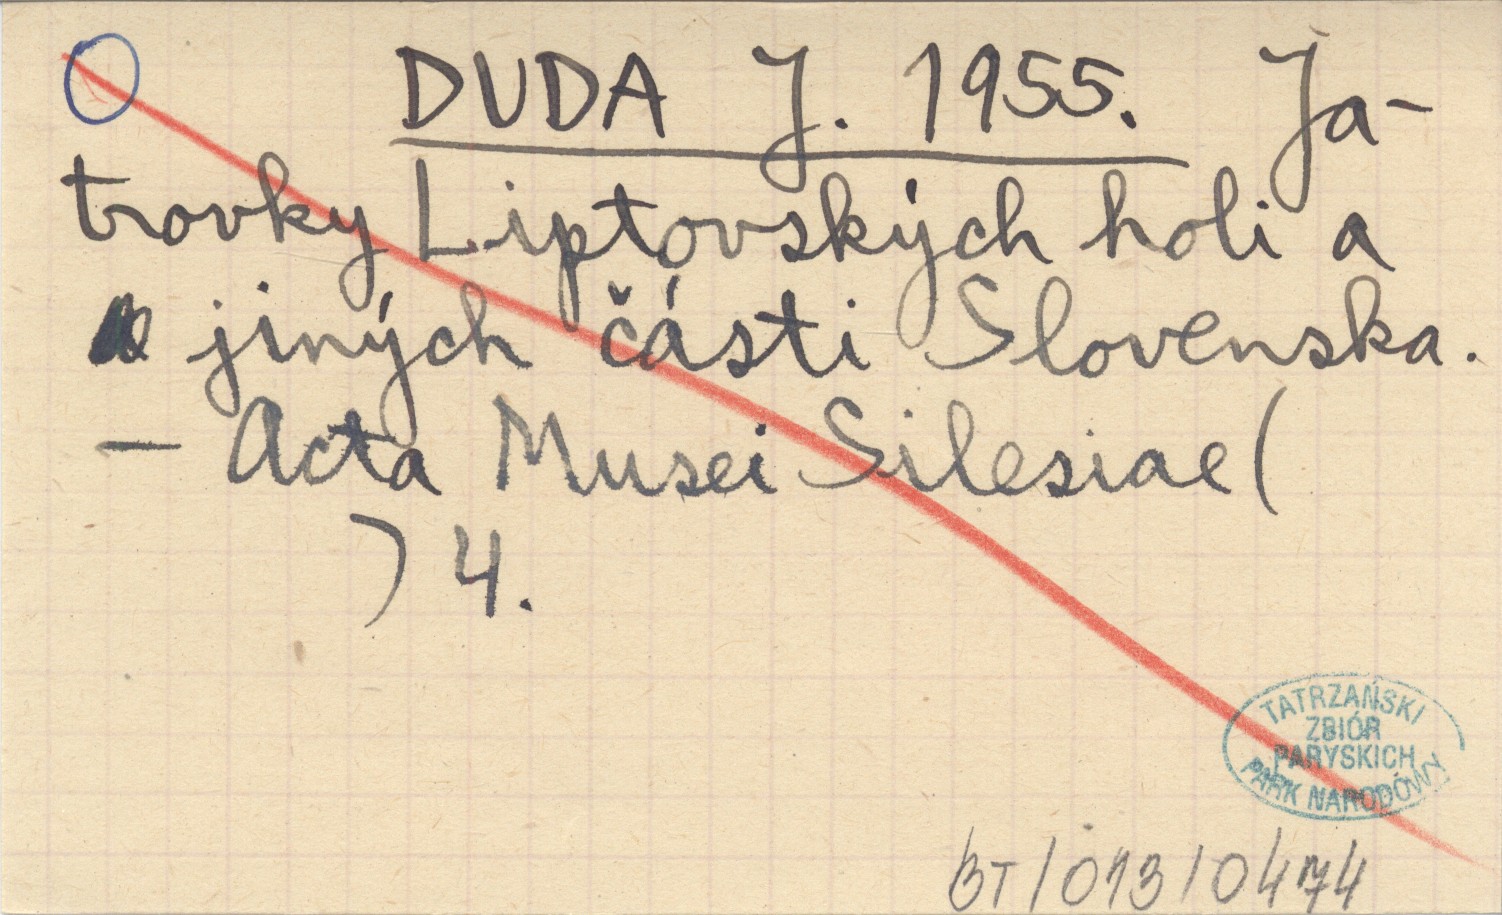 DUDA J. 1955. Ja-
trovky Liptovských holi a
jiných části Slovenska.
— Acta Musei Silesiae (
) 4.
TATRZAŃSKI
ZBIÓR
PARYSKICH
PARK NARODOWY
BT/013/0474